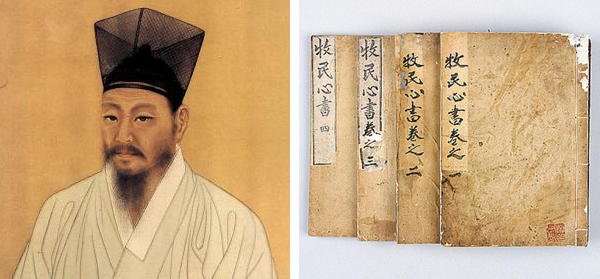 牧民心書 四
牧民心書卷之三
牧民心書卷之二
牧民心書卷之一